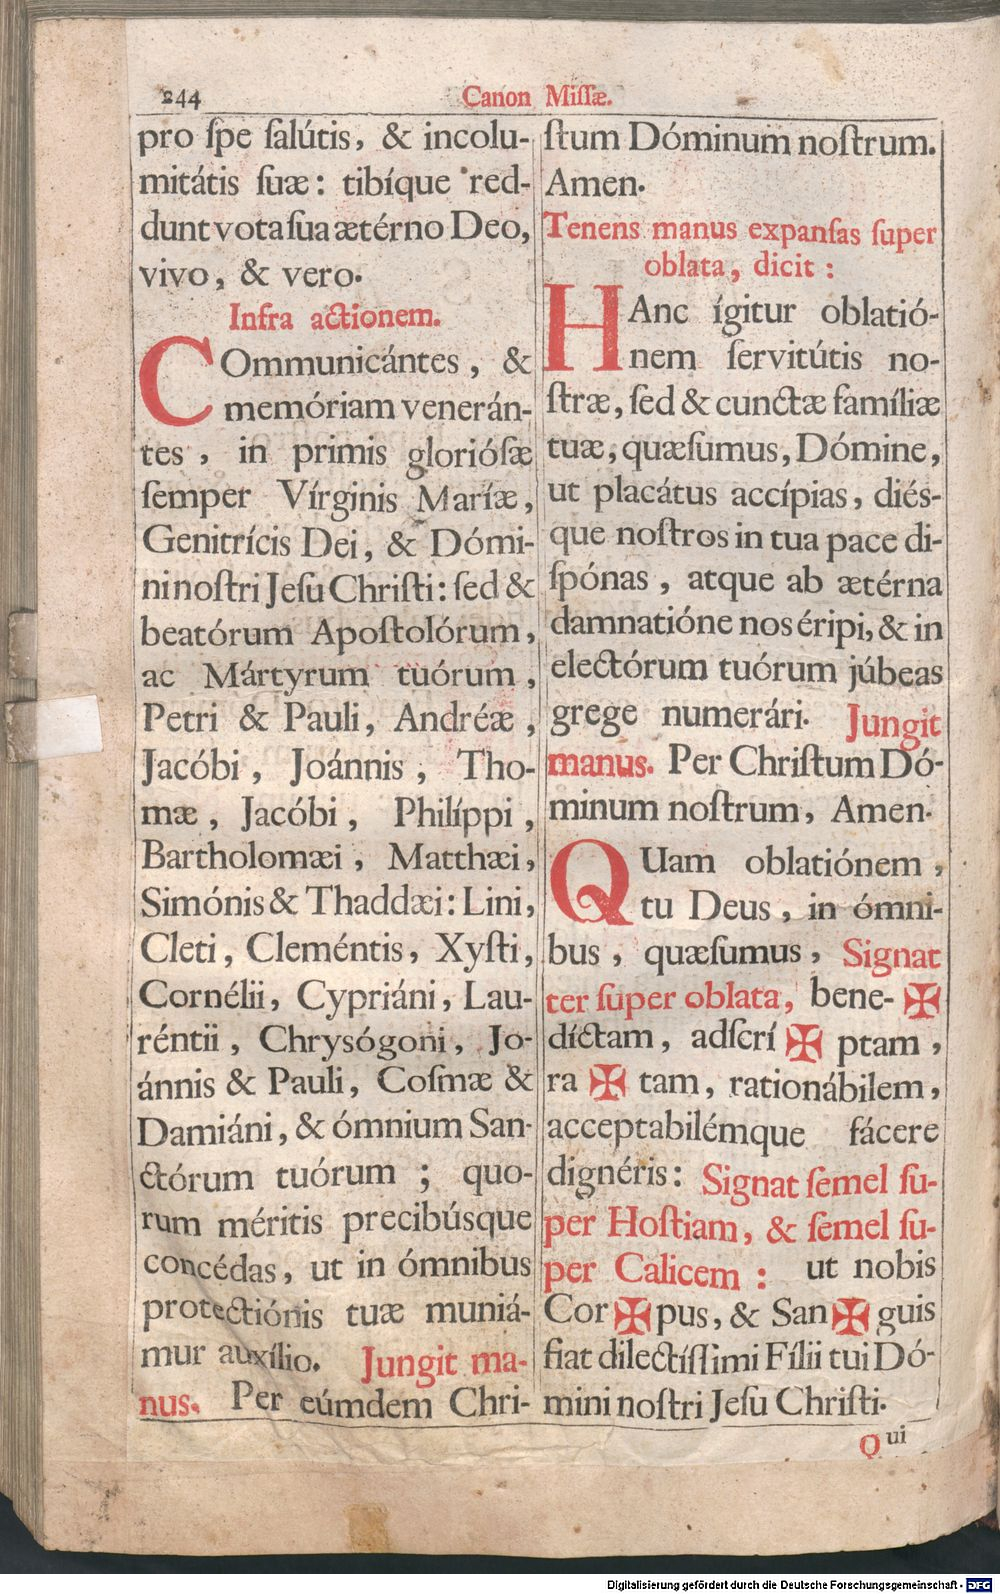 244
Canon Miſſæ.
pro ſpe ſalútis, & incolu-
mitátis ſuæ: tibíque red-
dunt vota ſua ætérno Deo,
vivo, & vero.
Infra actionem.
COmmunicántes, &
memóriam venerán-
tes, in primis glorióſæ
ſemper Vírginis Maríæ,
Genitrícis Dei, & Dómi-
ni noſtri Jeſu Chriſti: ſed &
beatórum Apoſtolórum,
ac Mártyrum tuórum,
Petri & Pauli, Andréæ,
Jacóbi, Joánnis, Tho-
mæ, Jacóbi, Philíppi,
Bartholomæi, Matthæi,
Simónis & Thaddæi: Lini,
Cleti, Cleméntis, Xyſti,
Cornélii, Cypriáni, Lau-
réntii, Chrysógoni, Jo-
ánnis & Pauli, Coſmæ &
Damiáni, & ómnium San-
ctórum tuórum; quo-
rum méritis precibúsque
concédas, ut in ómnibus
protectiónis tuæ muniá-
mur auxílio. Jungit ma-
nus. Per eúmdem Chri-
ſtum Dóminum noſtrum.
Amen.
Tenens manus expanſas ſuper
oblata, dicit:
HAnc ígitur oblatió-
nem ſervitútis no-
ſtræ, ſed & cunctæ famíliæ
tuæ, quæſumus, Dómine,
ut placátus accípias, diés-
que noſtros in tua pace di-
ſpónas, atque ab ætérna
damnatióne nos éripi, & in
electórum tuórum júbeas
grege numerári. Jungit
manus. Per Chriſtum Dó-
minum noſtrum, Amen.
QUam oblatiónem,
tu Deus, in ómni-
bus, quæſumus, Signat
ter ſuper oblata, bene- ✠
díctam, adſcrí ✠ ptam,
ra ✠ tam, rationábilem,
acceptabilémque fácere
dignéris: Signat ſemel ſu-
per Hoſtiam, & ſemel ſu-
per Calicem: ut nobis
Cor ✠ pus, & San ✠ guis
fiat dilectíſſimi Fílii tui Dó-
mini noſtri Jeſu Chriſti.
Qui
Digitalisierung gefördert durch die Deutsche Forschungsgemeinschaft - DFG